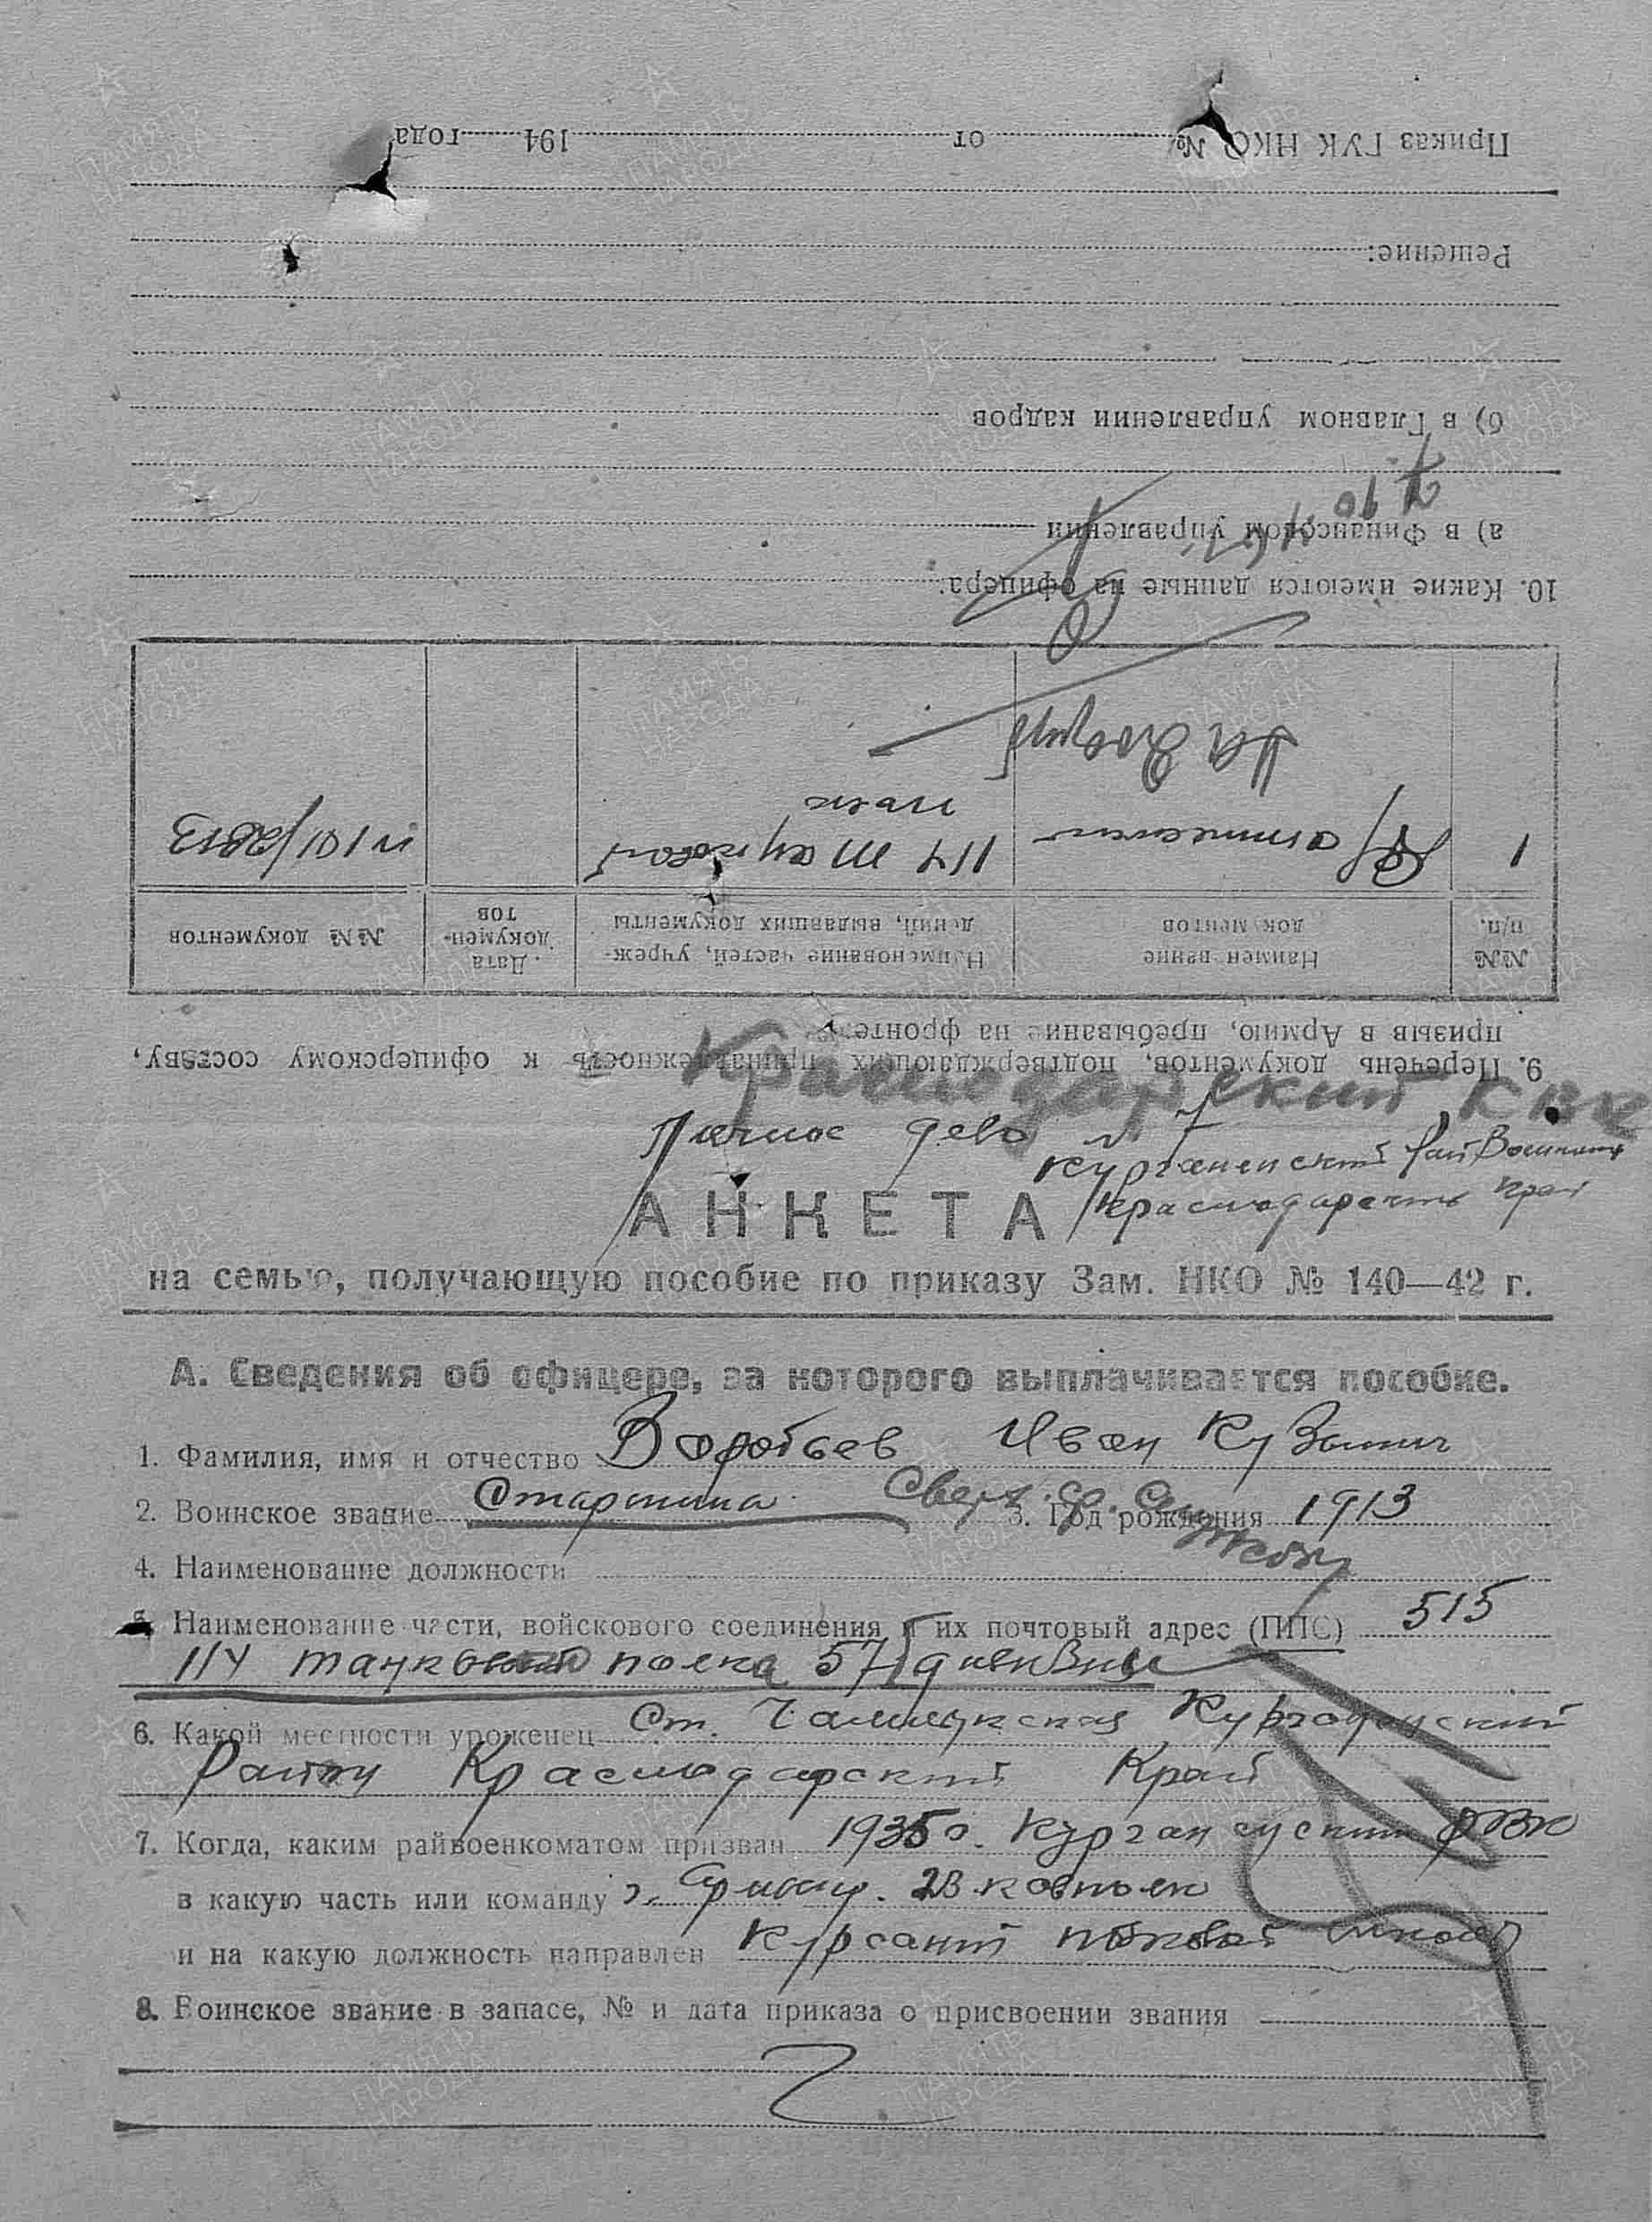 Краснодарский КВК
Личное дело №
Курганенский РайВоенком
Краснодарский край
АНКЕТА
на семью, получающую пособие по приказу Зам. НКО № 140—42 г.
А. Сведения об офицере, за которого выплачивается пособие.
1. Фамилия, имя и отчество Воробьев Иван Кузьмич
2. Воинское звание Старшина 3. Год рождения 1913
4. Наименование должности
5. Наименование части, войскового соединения и их почтовый адрес (ППС) 515
114 танковый полка 57 дивизии
6. Какой местности уроженец Ст. Чамлыкская Курганенский
Район Краснодарский Край
7. Когда, каким райвоенкоматом призван 1935 г. РВК
в какую часть или команду
и на какую должность направлен Курсант полковой школы
8. Воинское звание в запасе, № и дата приказа о присвоении звания
9. Перечень документов, подтверждающих принадлежность к офицерскому составу,
призыв в Армию, пребывание на фронте
№№ п/п. Наименование документов Наименование частей, учреждений, выдавших документы Дата документов №№ документов
1 Аттестат 114 танковой полк
10. Какие имеются данные на офицера:
а) в Финансовом управлении
б) в Главном управлении кадров
Решение:
Приказ ГУК НКО № от 194 года
ПАМЯТЬ НАРОДА